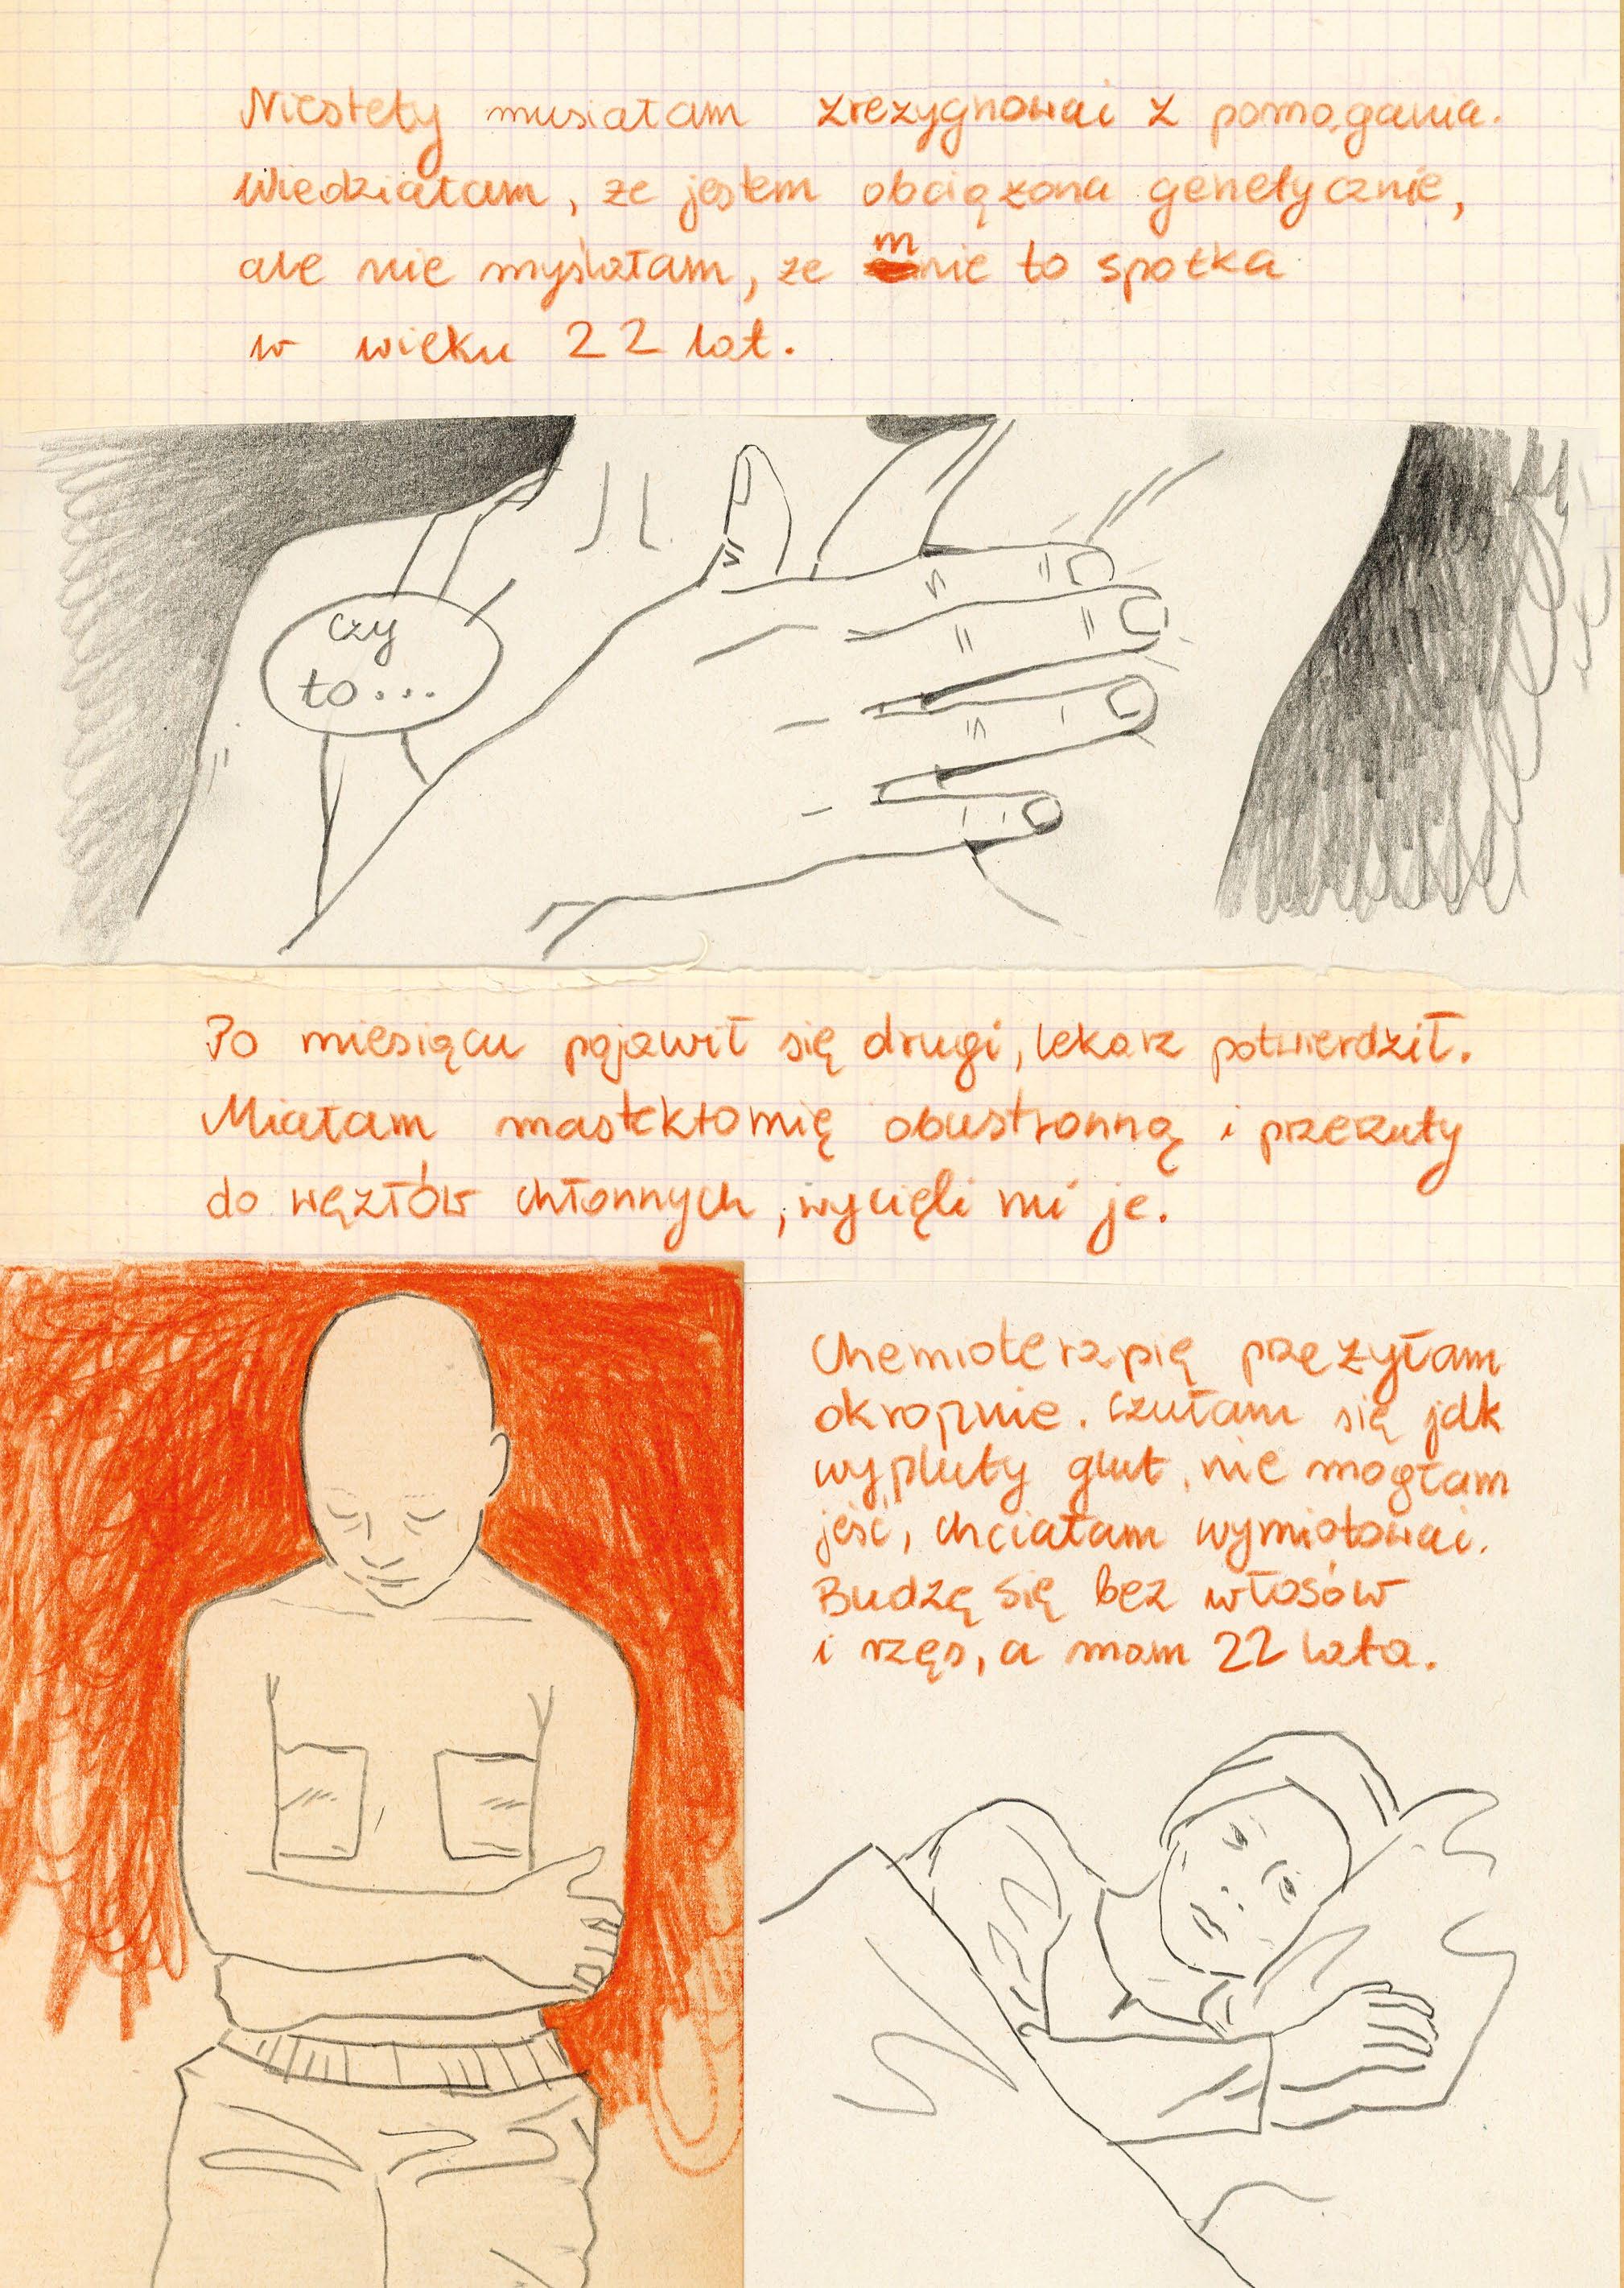 Niestety musiałam zrezygnować z pomagania.
Wiedziałam, że jestem obciążona genetycznie,
ale nie myślałam, że mnie to spotka
w wieku 22 lat.
czy
to...
Po miesiącu pojawił się drugi, lekarz potwierdził.
Miałam mastektomię obustronną i przerzuty
do węzłów chłonnych, wycięli mi je.
Chemioterapię przeżyłam
okropnie. Czułam się jak
wypluty glut, nie mogłam
jeść, chciałam wymiotować.
Budzę się bez włosów
i rzęs, a mam 22 lata.